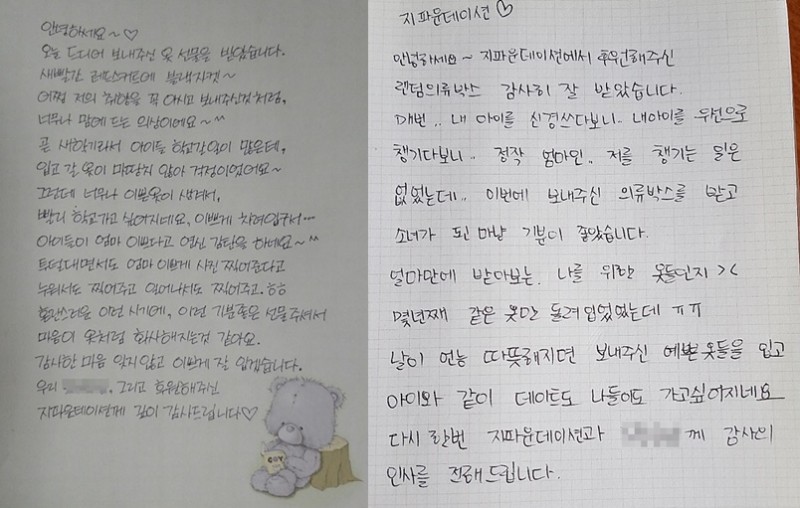 안녕하세요~♡
오늘 드디어 보내주신 옷 선물을 받았습니다.
새빨간 레드스커트에 봄새자켓~
어쩜 저의 취향을 꼭 아시고 보내주신것처럼,
너무나 맘에 드는 의상이에요~^^
곧 새학기라서 아이들 학교갈일이 많은데,
입고 갈 옷이 마땅치 않아 걱정이었어요~
그런데 너무나 이쁜옷이 생겨서,
빨리 학교가고 싶어지네요, 이쁘게 차려입구서…
아이들이 엄마 이쁘다고 연신 감탄을 하네요~^^
투덜대면서도 엄마 이쁘게 사진 찍어준다고
누워서도 찍어주고 일어나서도 찍어주고.ㅎㅎ
혼란스러운 이런 시기에, 이런 기분좋은 선물주셔서
마음이 옷처럼 화사해지는것 같아요.
감사한 마음 잊지않고 이쁘게 잘 입겠습니다.
우리 , 그리고 후원해주신
지파운데이션께 깊이 감사드립니다♡
지파운데이션♡
안녕하세요~ 지파운데이션에서 후원해주신
랜덤의류박스 감사히 잘 받았습니다.
매번.. 내 아이를 신경쓰다보니.. 내아이를 우선으로
챙기다보니.. 정작 엄마인.. 저를 챙기는 일은
없었는데.. 이번에 보내주신 의류박스를 받고
소녀가 된 마냥 기분이 좋았습니다.
얼마만에 받아보는. 나를 위한 옷들인지 ><
몇년째 같은 옷만 돌려입었었는데 ㅠㅠ
날이 언능 따뜻해지면 보내주신 예쁜옷들을 입고
아이와 같이 데이트도 나들이도 가고싶어지네요
다시 한번 지파운데이션과 께 감사의
인사를 전해드립니다.